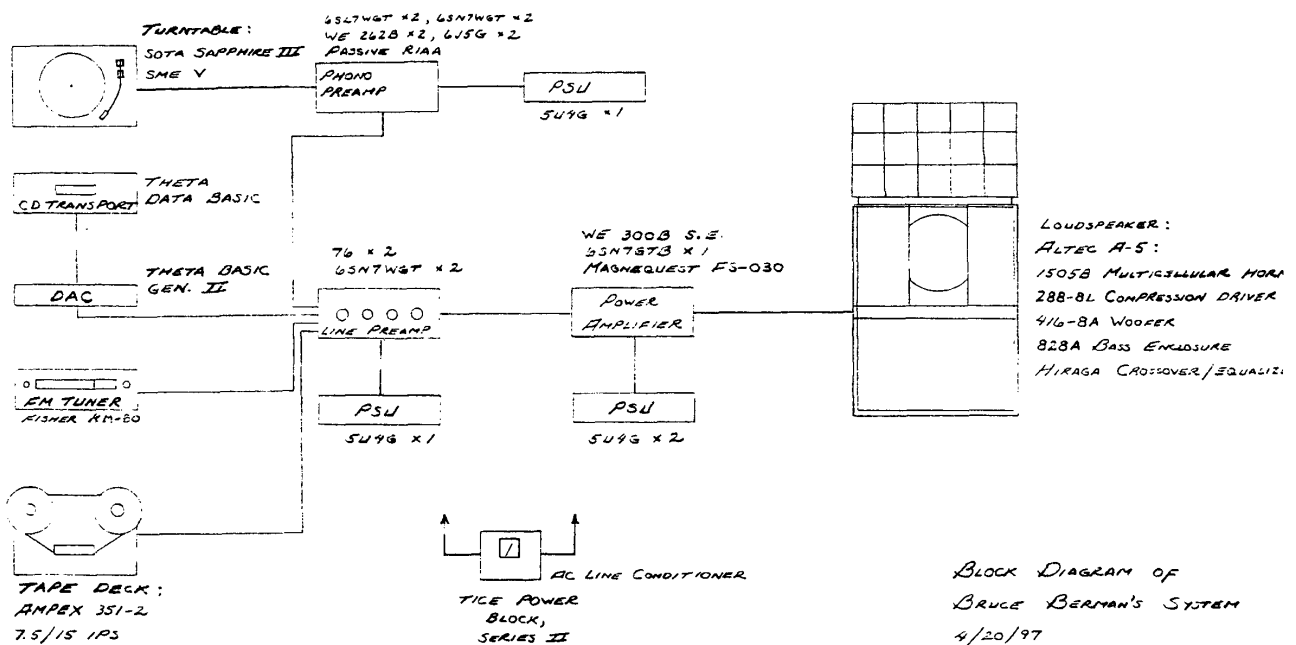 TURNTABLE:
SOTA SAPPHIRE III
SME V
6SL7WGT x2, 6SN7WGT x2
WE 262B x2, 6J5G x2
PASSIVE RIAA
PHONO
PREAMP
PSU
5U4G x1
CD TRANSPORT
THETA
DATA BASIC
DAC
THETA BASIC
GEN. II
76 x 2
6SN7WGT x 2
LINE PREAMP
PSU
5U4G x1
WE 300B S.E.
6SN7GTB x 1
MAGNEQUEST FS-030
POWER
AMPLIFIER
PSU
5U4G x 2
LOUDSPEAKER:
ALTEC A-5:
1505B MULTICELLULAR HORN
288-8L COMPRESSION DRIVER
416-8A WOOFER
828A BASS ENCLOSURE
HIRAGA CROSSOVER/EQUALIZ
FM TUNER
FISHER KM-60
TAPE DECK:
AMPEX 351-2
7.5/15 IPS
AC LINE CONDITIONER
TICE POWER
BLOCK,
SERIES II
BLOCK DIAGRAM OF
BRUCE BERMAN'S SYSTEM
4/20/97